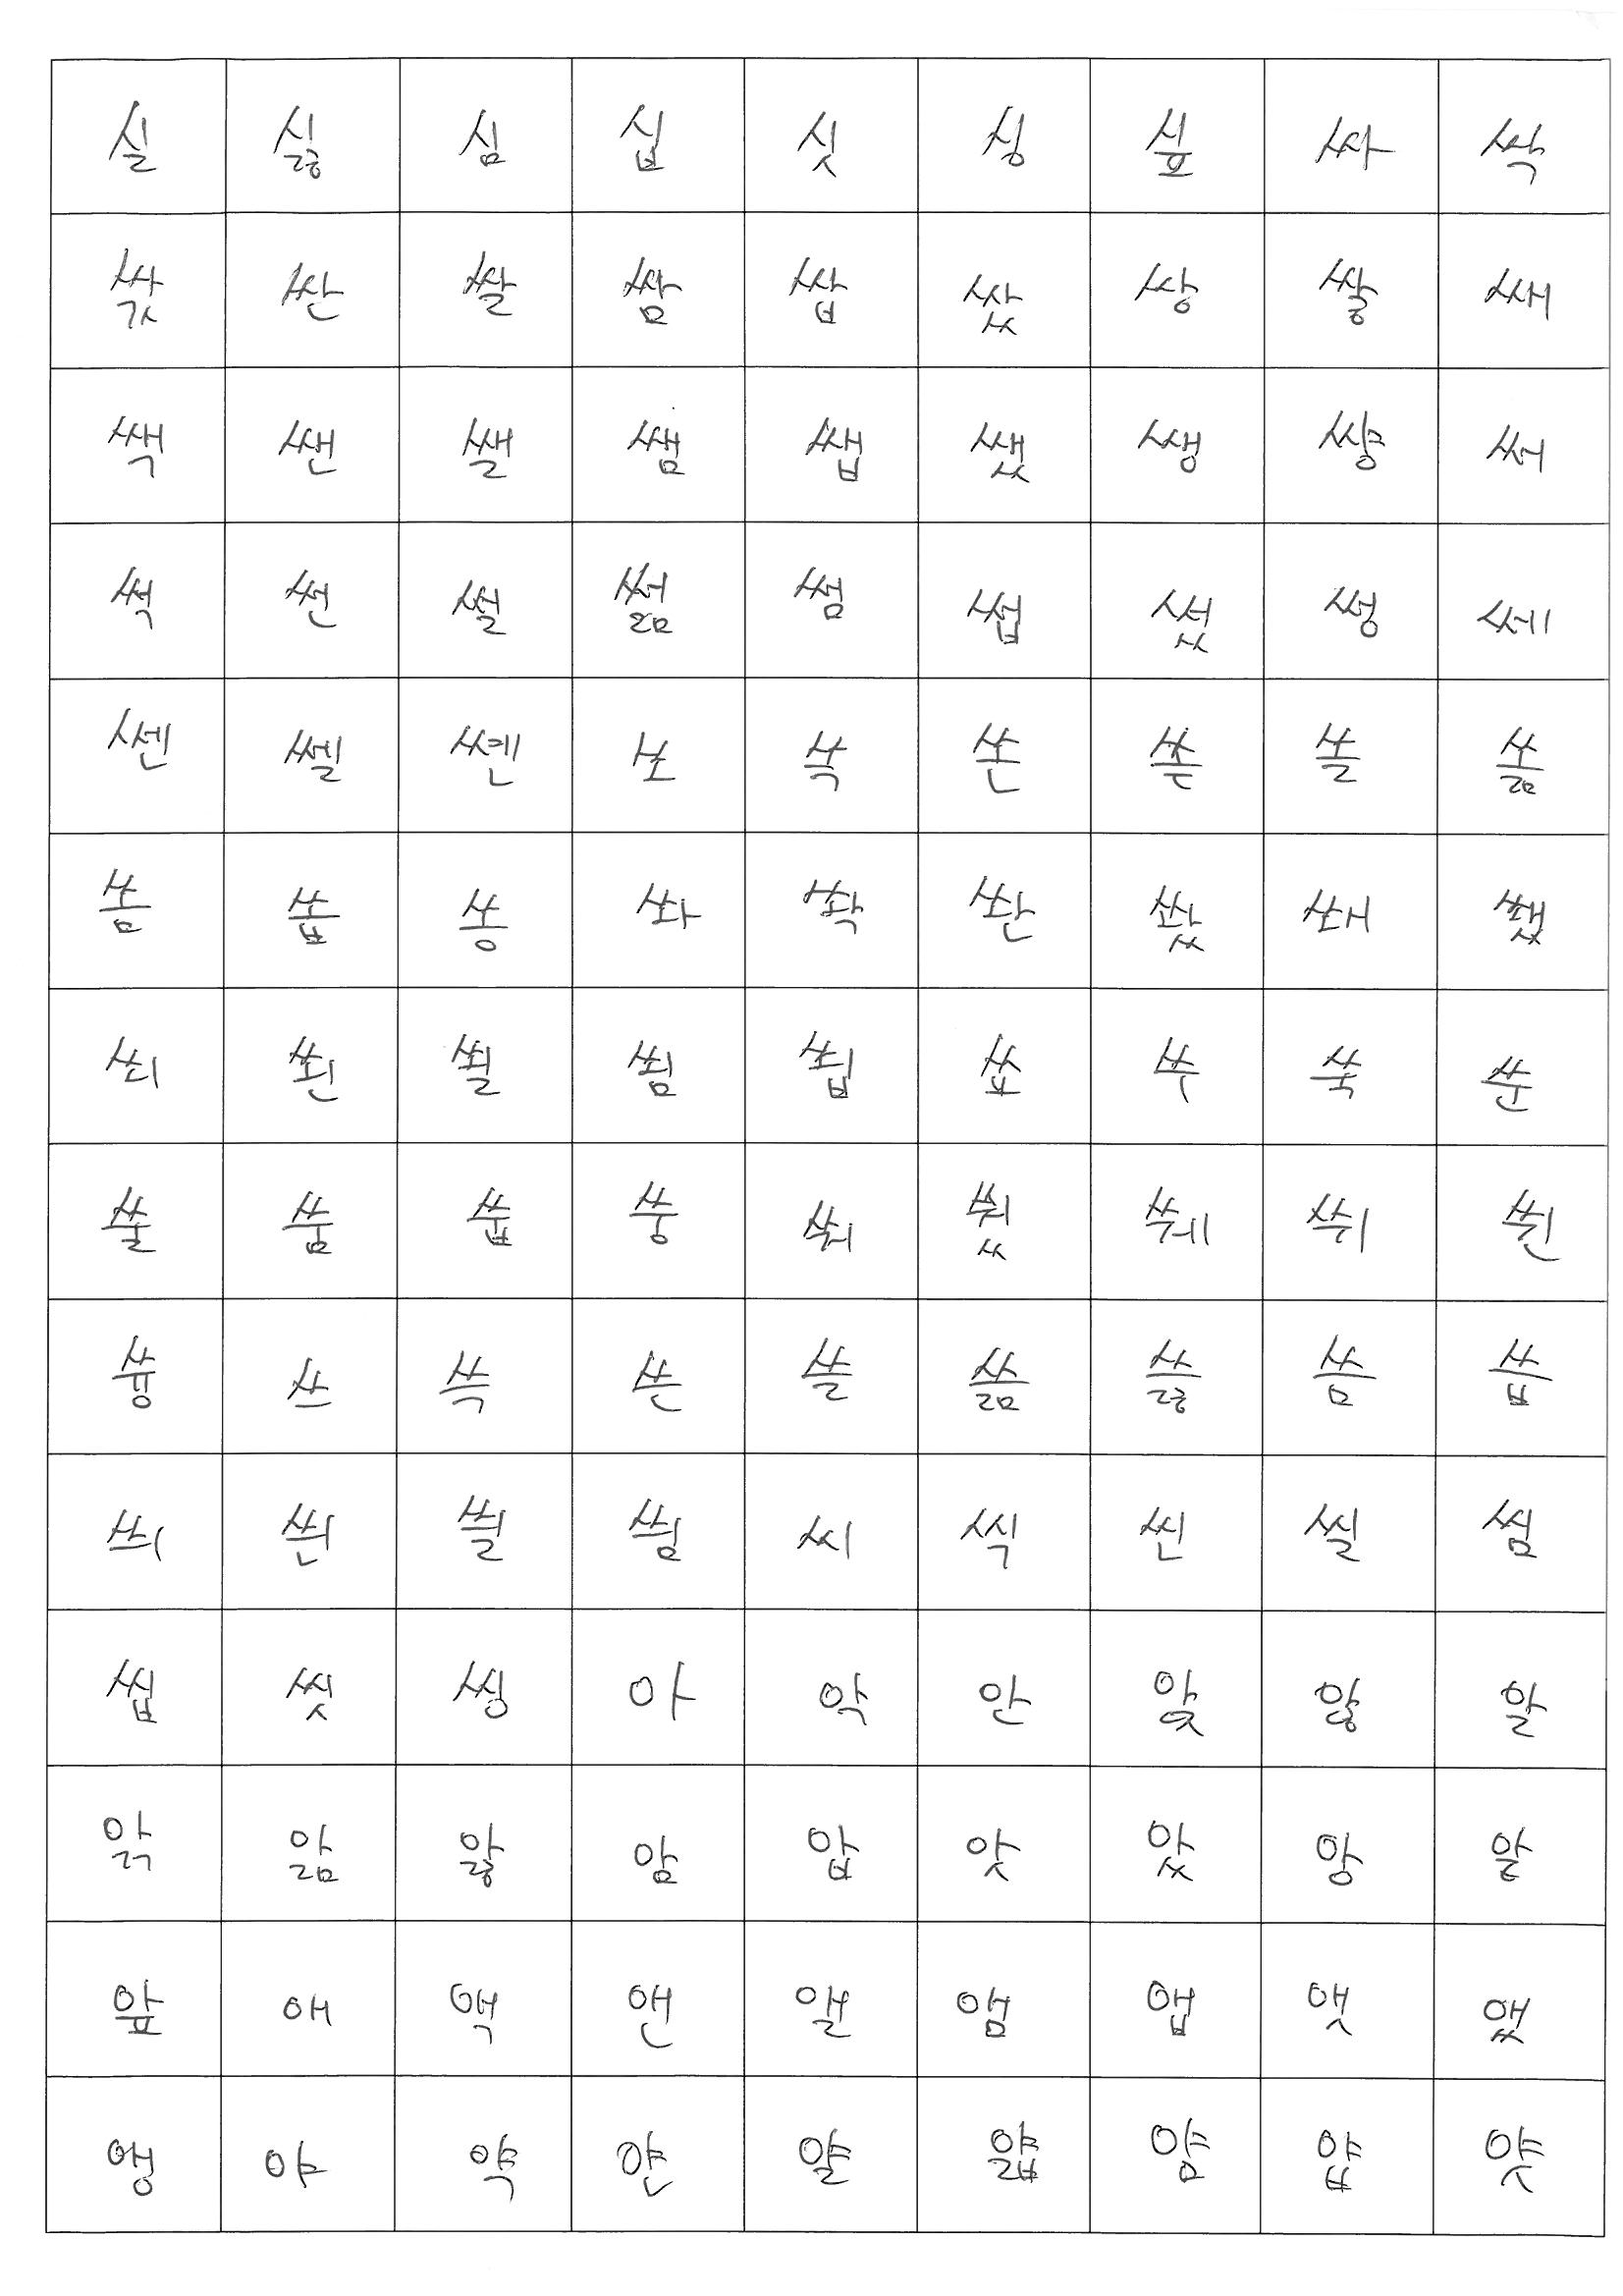 실 싫 심 십 싯 싱 싶 싸 싹
싻 싼 쌀 쌈 쌉 쌌 쌍 쌓 쌔
쌕 쌘 쌜 쌤 쌥 쌨 쌩 썅 써
썩 썬 썰 썲 썸 썹 썼 썽 쎄
쎈 쎌 쏀 노 쏙 쏜 쏟 쏠 쏢
쏨 쏩 쏭 쏴 쏵 쏸 쐈 쐐 쐤
쐬 쐰 쐴 쐼 쐽 쑈 쑤 쑥 쑨
쑬 쑴 쑵 쑹 쒀 쒔 쒜 쒸 쒼
쓩 쓰 쓱 쓴 쓸 쓺 쓿 씀 씁
씌 씐 씔 씜 씨 씩 씬 씰 씸
씹 씻 씽 아 악 안 앉 않 알
앍 앎 앓 암 압 앗 았 앙 앝
앞 애 액 앤 앨 앰 앱 앳 앴
앵 야 약 얀 얄 얇 얌 얍 얏